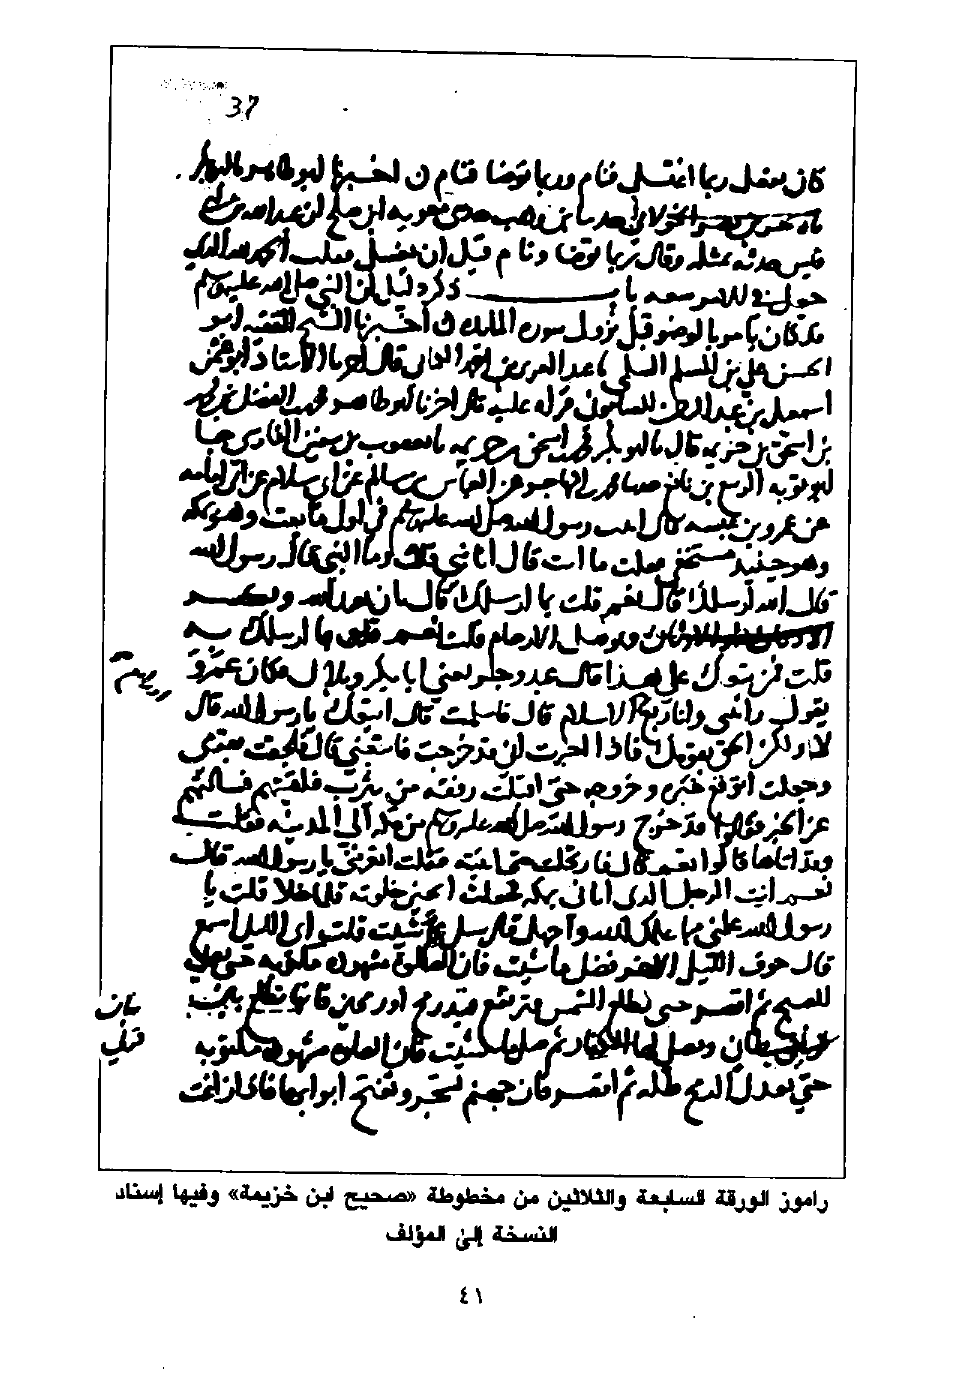 37
كان يفعل ربما اغتسل فنام وربما توضا فنام
الخولاني وهب معويه بن صلح ان عبدالله بن
قيس حدثه بمثله وقال ربما توضا ونام قبل ان يغتسل فقلت الحمد لله الذي
جعل في الامر سعه باب ذكر دليل ان النبي صلى الله عليه وسلم
قد كان يامر بالوضو قبل نزول سوره المايده اخبرنا الشيخ الفقيه ابو
الحسن علي بن المسلم السلمي عبد العزيز بن احمد قال اخبرنا الاستاذ ابو عثمن
اسمعيل بن عبد الرحمن الصابوني قراه عليه قال اخبرنا ابو طاهر محمد بن الفضل بن محمد
بن اسحق بن خزيمه قال ابو بكر محمد بن اسحق بن خزيمه يعقوب بن سفين الفارسي
ابو توبه الربيع بن نافع محمد بن المهاجر عن العباس بن سالم عن ابي سلام عن ابي امامه
عن عمرو بن عبسه قال اتيت رسول الله صلى الله عليه وسلم في اول ما بعث وهو بمكه
وهو حينيذ مستخفي فقلت ما انت قال انا نبي قلت وما النبي قال رسول الله
قال الله ارسلك قال نعم قلت بما ارسلك قال بان نعبد الله
الاوثان وتوصل الارحام قلت نعم ما ارسلك به
قلت فمن يتبعك على هذا قال عبد وحر يعني ابا بكر وبلال فكان عمرو
يقول رايتني وانا ربع الاسلام قال فاسلمت قال اتبعك يا رسول الله قال
لا ولكن الحق بقومك فاذا اخبرت اني قد خرجت فاتبعني قال فلحقت بقومي
وجعلت اتوقع خبره وخروجه حتى اقبلت رفقه من يثرب فلقيتهم فسالتهم
عن الخبر فقالوا قد خرج رسول الله صلى الله عليه وسلم من مكه الى المدينه فقلت
وقد اتاها قالوا نعم قال فارتحلت حتى اتيته فقلت اتعرفني يا رسول الله قال
نعم انت الرجل الذي اتاني بمكه فجعلت اتحين خلوته فلما خلا قلت يا
رسول الله علمني مما علمك الله واجهل قال سل عم شيت قلت اي الليل اسمع
قال جوف الليل الاخر فصل ما شيت فان الصلوة مشهوده مكتوبه حتى تصلي
الصبح ثم اقصر حتى تطلع الشمس فترتفع قيد رمح او رمحين فانها تطلع بين
قرني شيطان ويصلي لها الكفار ثم صل ما شيت فان الصلوه مشهوده مكتوبه
حتى يعدل الرمح ظله ثم اقصر فان جهنم تسجر وتفتح ابوابها فاذا زاغت
راموز الورقة السابعة والثلاثين من مخطوطة «صحيح ابن خزيمة» وفيها إسناد
النسخة إلى المؤلف
٤١